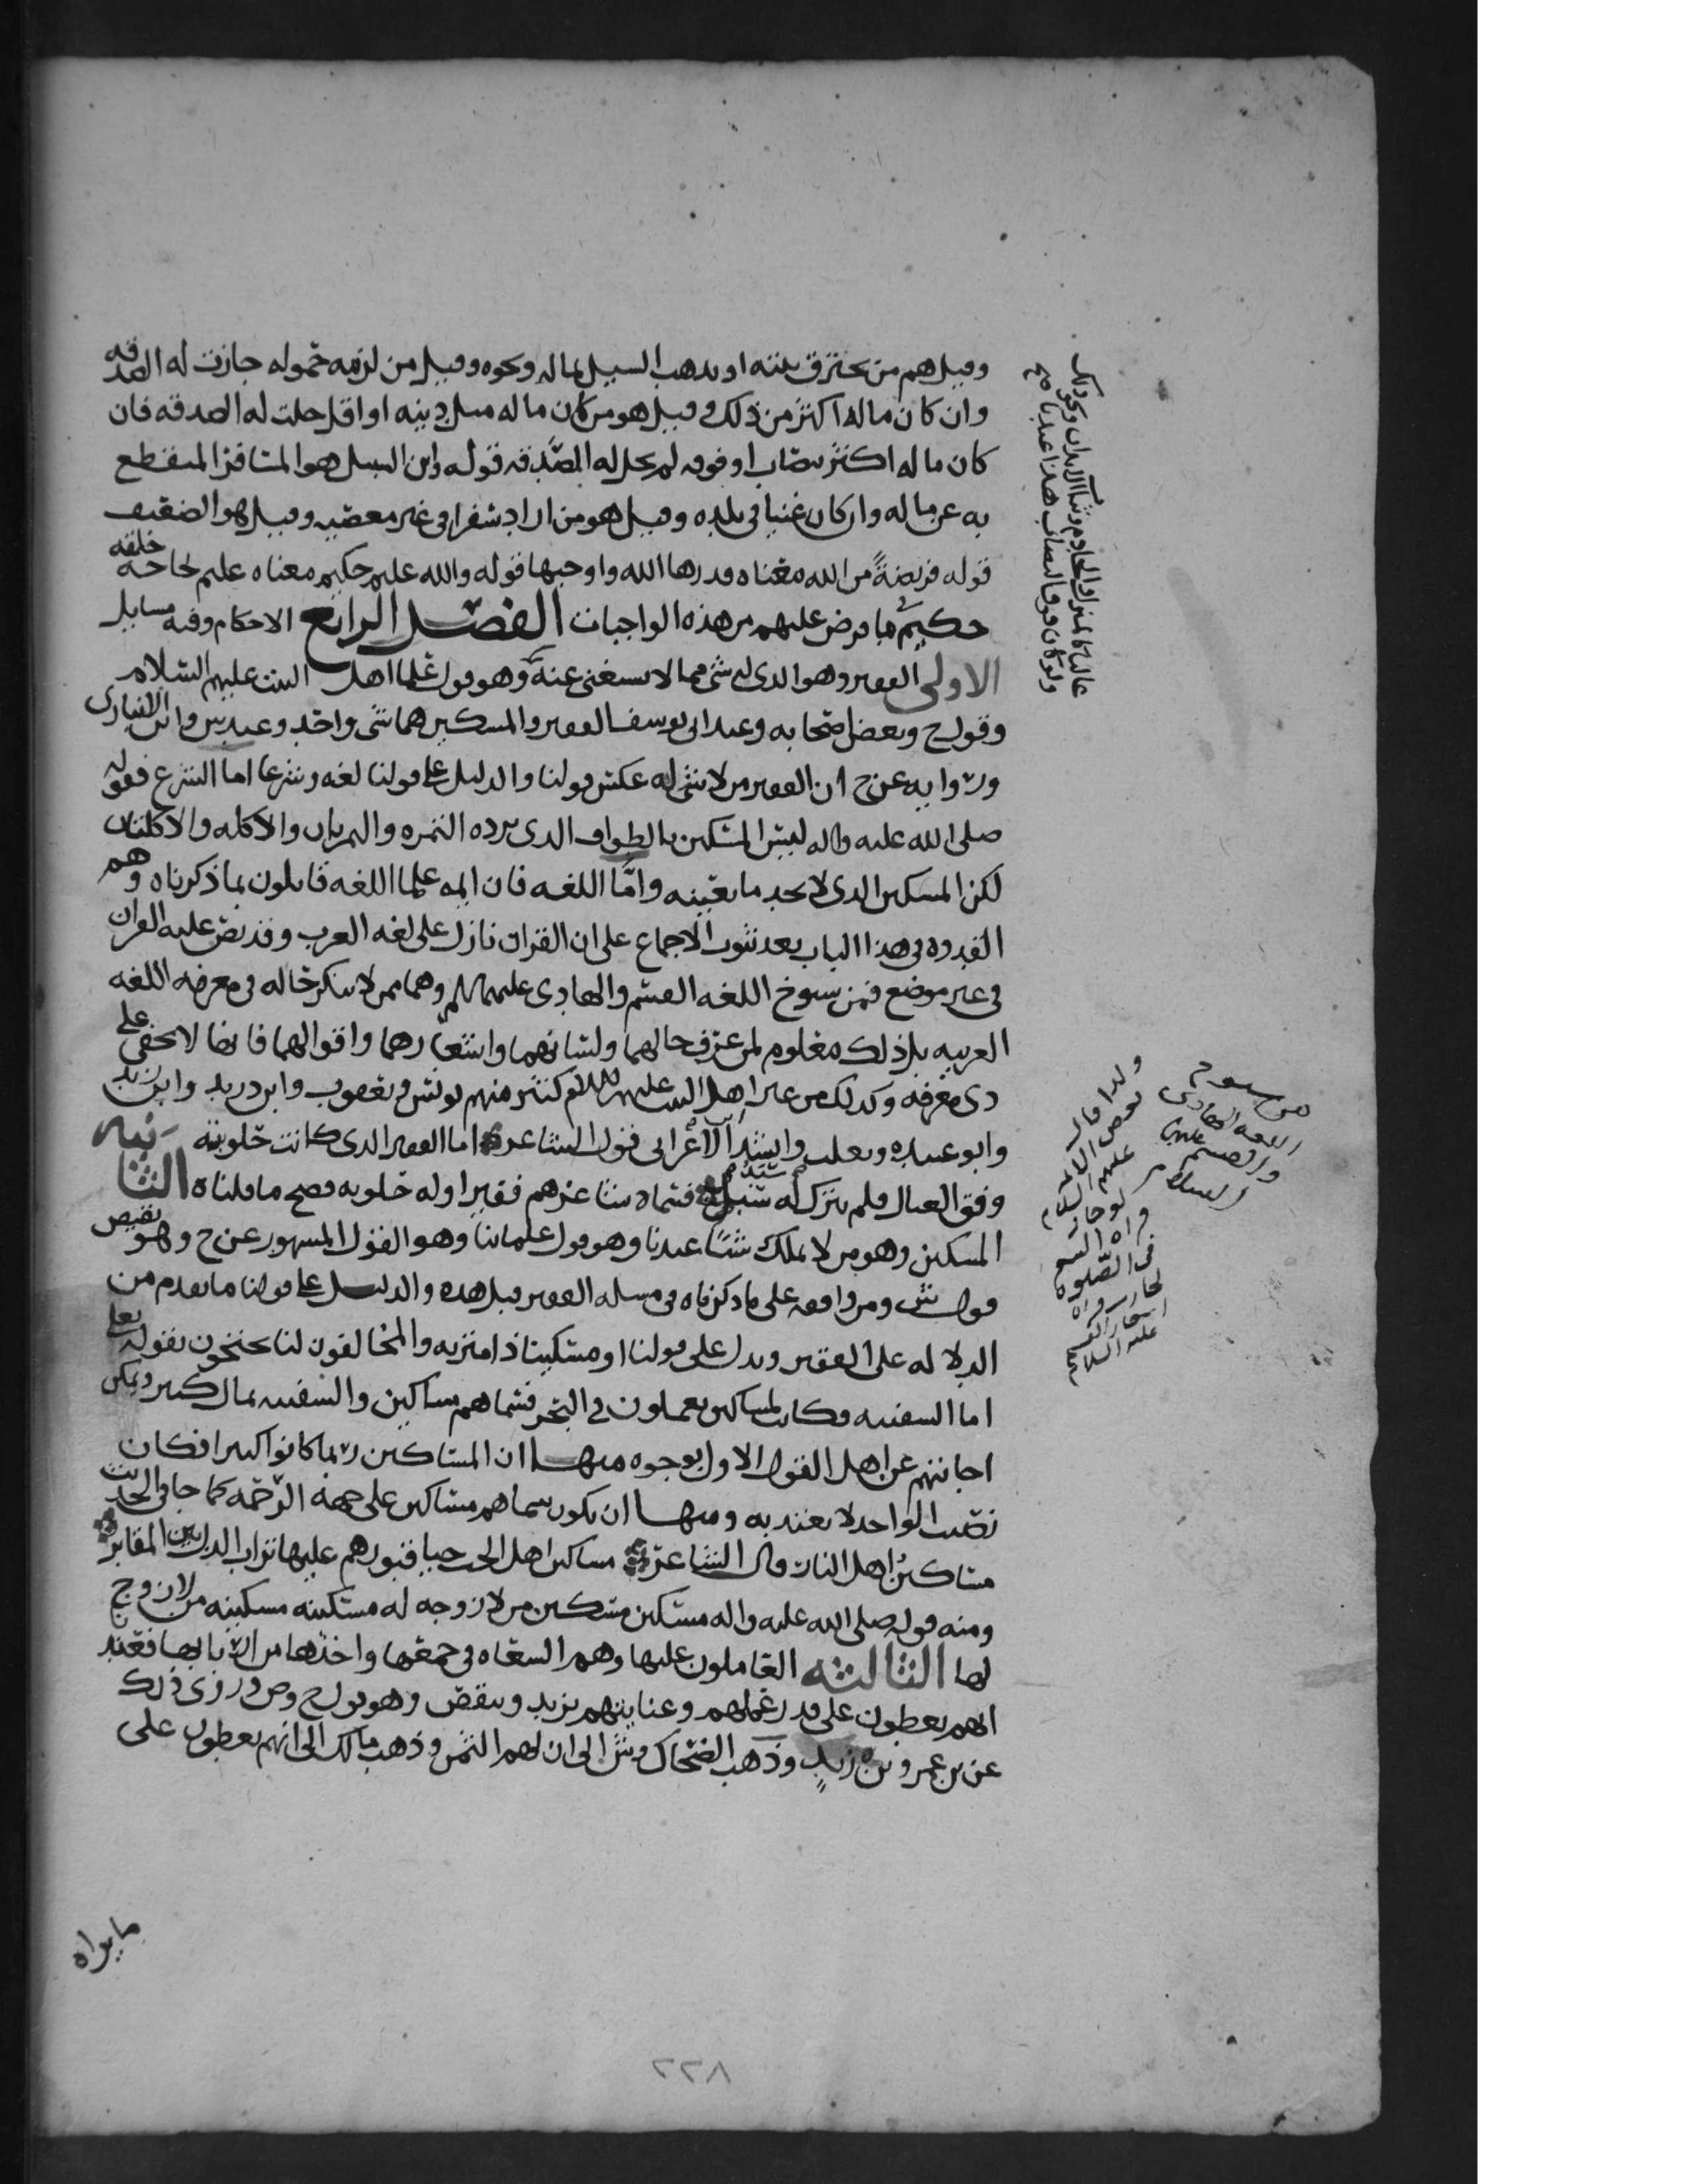 وقيل هم من يحترق بيته او يذهب السيل بماله ونحوه وقيل من لزمه حموله جازت له الصدقه
وان كان ماله اكثر من ذلك وقيل هو من كان ماله مثل دينه او اقل حلت له الصدقه فان
كان ماله اكثر نصاب او فوقه لم يحل له الصدقه قوله وابن السبيل هو المسافر المنقطع
به عن ماله وان كان غنيا في بلده وقيل هو من اراد سفرا في غير معصيه وقيل هو الضعيف
قوله فريضة من الله معناه قدرها الله واوجبها قوله والله عليم حكيم معناه عليم لحاجة خلقه
حكيم ما فرض عليهم من هذه الواجبات الفصل الرابع الاحكام وفيه مسايل
الاولى الفقير وهو الذي له شي مما لا يستغنى عنه وهو قول علما اهل البيت عليهم السلام
وقول ح وبعض اصحابه وعند ابي يوسف الفقير والمسكين هما شي واحد وعند ش وابن الانباري
وروايه عن ح ان الفقير من لا شي له عكس قولنا والدليل على قولنا لغه وشرعا اما الشرع فقوله
صلى الله عليه واله ليس المسكين بالطواف الذي يرده التمره والتمرتان والاكله والاكلتان
لكن المسكين الذي لا يجد ما يغنيه واما اللغه فان ايمه علما اللغه قايلون بما ذكرناه وهم
القدوه في هذا الباب بعد ثبوت الاجماع على ان القران نازل على لغه العرب وقد نص عليه القران
في غير موضع فمن شيوخ اللغه القسم والهادي عليهما السلم وهما ممن لا ينكر حاله في معرفه اللغه
العربيه بل ذلك معلوم لمن عرف حالهما ولسانهما واشعارهما واقوالهما فانها لا تخفى على
ذي معرفه وكذلك من غير اهل البيت عليهم السلام كثير منهم يونس ويعقوب وابن دريد وابن زيد
وابو عبيده وثعلب وانشد الاعرابي قول الشاعر اما الفقير الذي كانت حلوبته
وفق العيال فلم يترك له سبد فسماه شاعرهم فقيرا وله حلوبه فصح ما قلناه الثانيه
المسكين وهو من لا يملك شيا عندنا وهو قول علماننا وهو القول المشهور عن ح وهو نقيض
قول ش ومن وافقه على ما ذكرناه في مسله الفقير قبل هذه والدليل على قولنا ما تقدم من
الدلاله على الفقير ويدل على قولنا او مسكينا ذا متربه والمخالفون لنا يحتجون بقوله تعلى
اما السفينه فكانت لمساكين يعملون في البحر فسماهم مساكين والسفينه بمال كثير ويمكن
اجابتهم عن اهل القول الاول بوجوه منها ان المساكين ربما كانوا كثيرا فكان
نصيب الواحد لا يعتد به ومنها ان يكون سماهم مساكين على جهة الرحمه كما جا في الحديث
مساكين اهل النار وقال الشاعر مساكين اهل الحب حتى قبورهم عليها تراب الذل بين المقابر
ومنه قوله صلى الله عليه واله مسكين مسكين من لا زوجه له مسكينه مسكينه من لا زوج
لها الثالثه العاملون عليها وهم السعاه في جمعها واخذها من اربابها فعند
انهم يعطون على قدر عملهم وعنايتهم يزيد وينقص وهو قول ح وص وروي ذلك
عن بن عمر وبن زيد وذهب الضحاك وش الى ان لهم الثمن وذهب مالك الى انهم يعطون على
ما يراه
من شيوخ
اللغه الهادي
والقسم عليهما
السلام
ولذا قال
بعض الايمه
عليهم السلام
لو جاز
في الصلوه
عليه السلام
٢٢٨